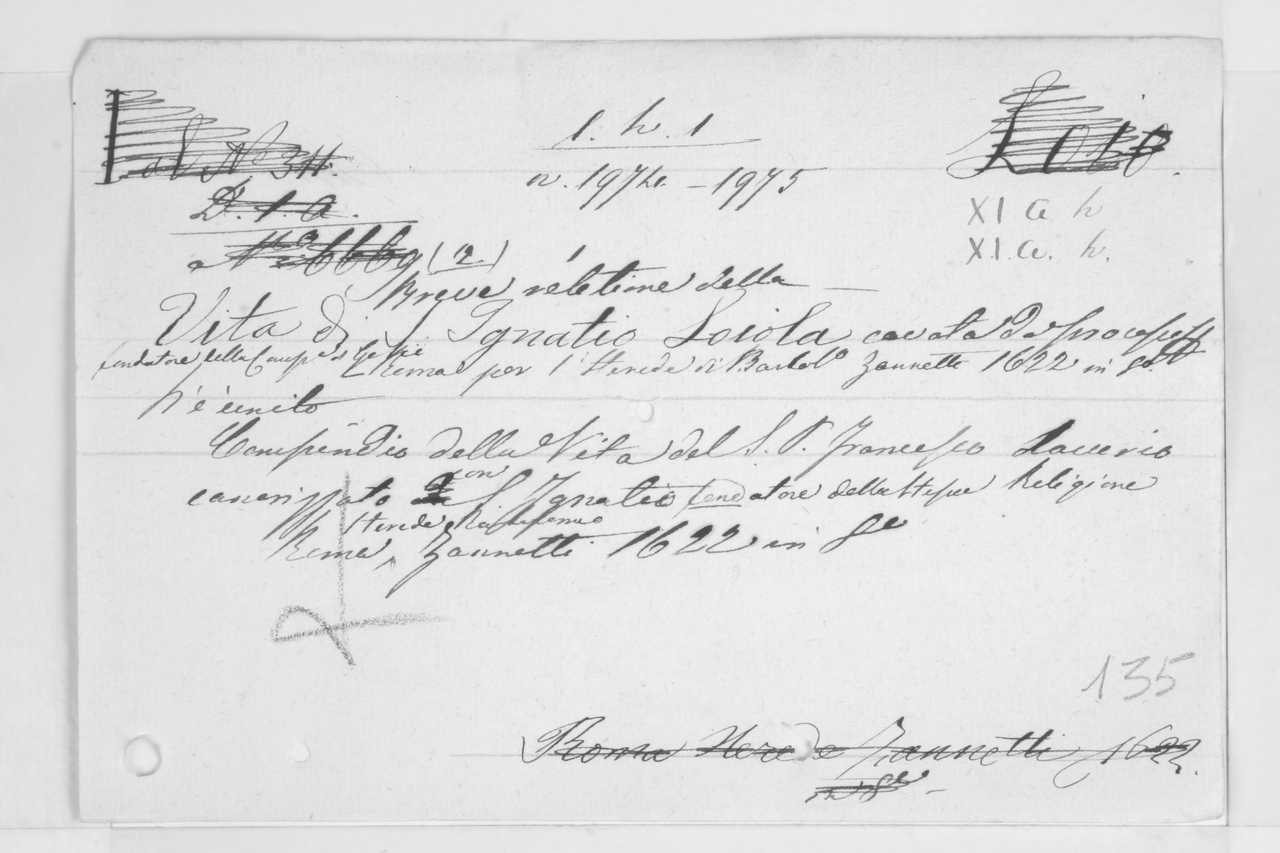 al N° 344.
1. h. 1
Loio.
n. 1974. - 1975
D. 1. a.
XI a h
XI. a. h.
(2.)
Breve reletione della
Vita di S Ignatio Loiola cavata da processi
fondatore della Comp. d Gesù Roma per l'Herede di Bartol° Zannetti 1622 in
N' è unito
Compendio della Vita del S. P. Francesco Saverio
canonizzato con S Ignatio fondatore della stessa Religione
Herede
Roma, Zannetti 1622 in 8°
135
Roma Herede Zannetti 1622.
in 8°